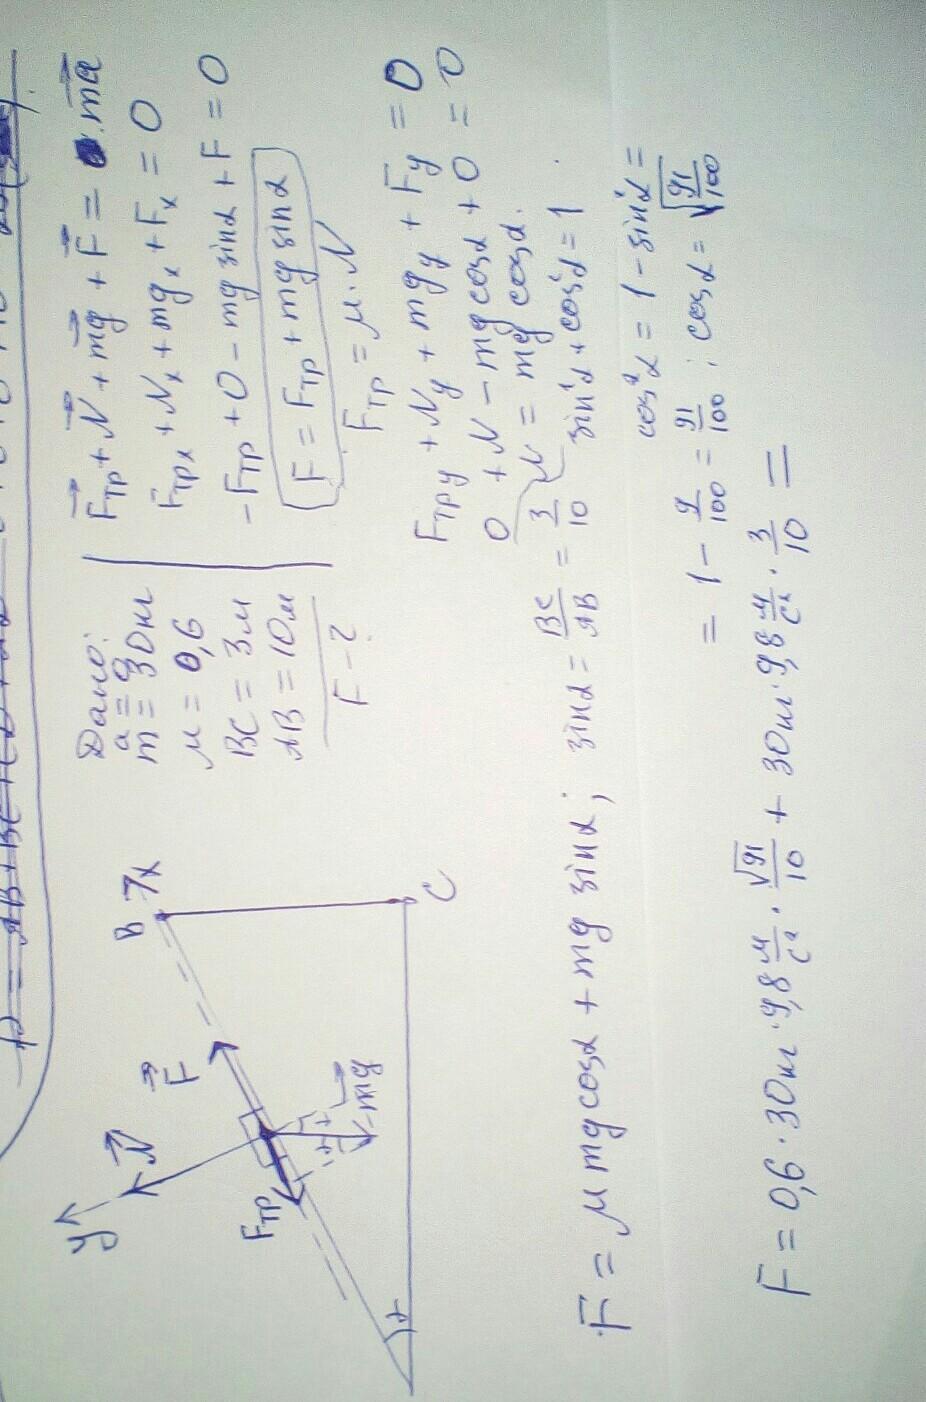 Дано:
a = 0
m = 30 кг
μ = 0,6
BC = 3м
AB = 10м
F - ?
Fтр + N + mg + F = ma
Fтрx + Nx + mgx + Fx = 0
-Fтр + 0 - mg sinα + F = 0
F = Fтр + mg sinα
Fтр = μ · N
Fтрy + Ny + mgy + Fy = 0
0 + N - mg cosα + 0 = 0
N = mg cosα.
y
N
F
B
x
Fтр
mg
α
C
F = μ mg cosα + mg sinα; sinα = BC/AB = 3/10
sin²α + cos²α = 1
cos²α = 1 - sin²α =
= 1 - 9/100 = 91/100; cosα = √91/100
F = 0,6 · 30кг · 9,8 м/с² · √91/10 + 30кг · 9,8 м/с² · 3/10 =